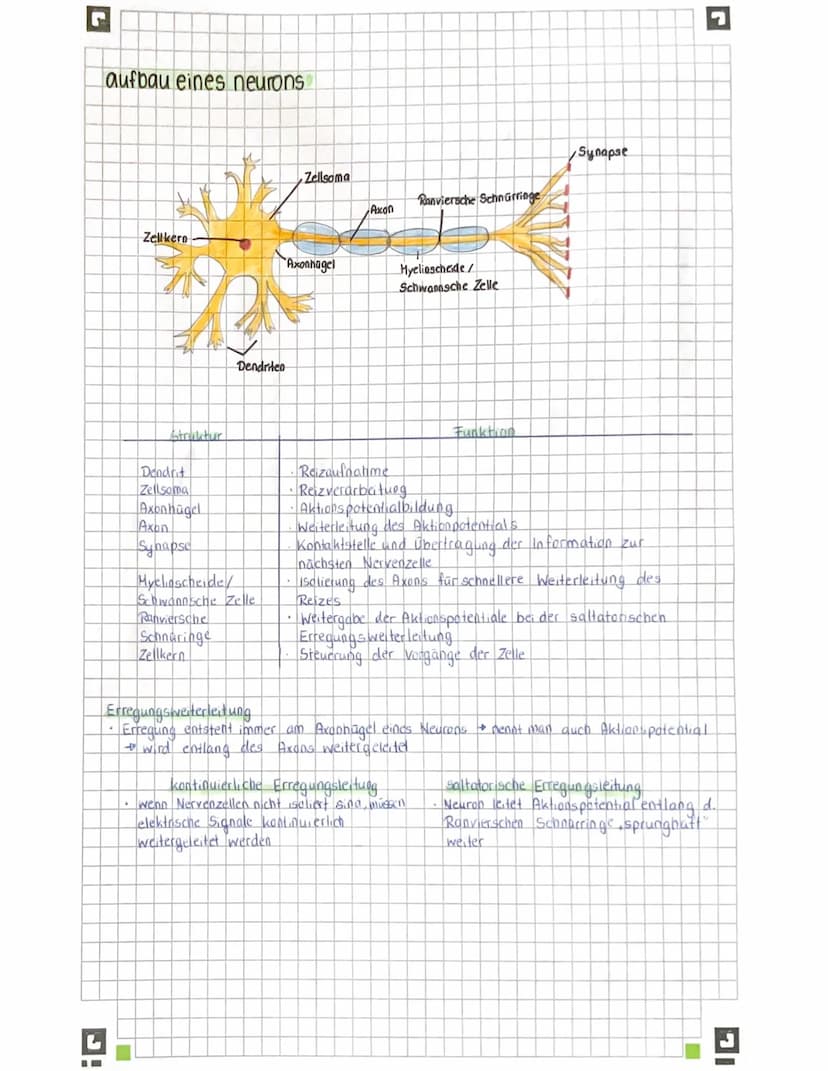 aufbau eines neurons
Synapse
Zellsoma
Ranviersche Schnürringe
Axon
Zellkern
Axonhügel
Myelinscheide /
Schwannsche Zelle
Dendriten
Struktur Funktion
Dendrit · Reizaufnahme
Zellsoma · Reizverarbeitung
Axonhügel · Aktionspotentialbildung
Axon · Weiterleitung des Aktionpotentials
Synapse · Kontaktstelle und Übertragung der Information zur
nächsten Nervenzelle
Myelinscheide/ · isolierung des Axons für schnellere Weiterleitung des
Schwannsche Zelle Reizes
Ranviersche · Weitergabe der Aktionspotentiale bei der saltatorischen
Schnüringe Erregungsweiterleitung
Zellkern · Steuerung der Vorgänge der Zelle
Erregungsweiterleitung
· Erregung entsteht immer am Axonhügel eines Neurons → nennt man auch Aktionspotential
→ wird entlang des Axons weitergeleitet
kontinuierliche Erregungsleitung
· wenn Nervenzellen nicht isoliert sind, müssen
elektrische Signale kontinuierlich
weitergeleitet werden
saltatorische Erregungsleitung
· Neuron leitet Aktionspotential entlang d.
Ranvierschen Schnürringe „sprunghaft"
weiter